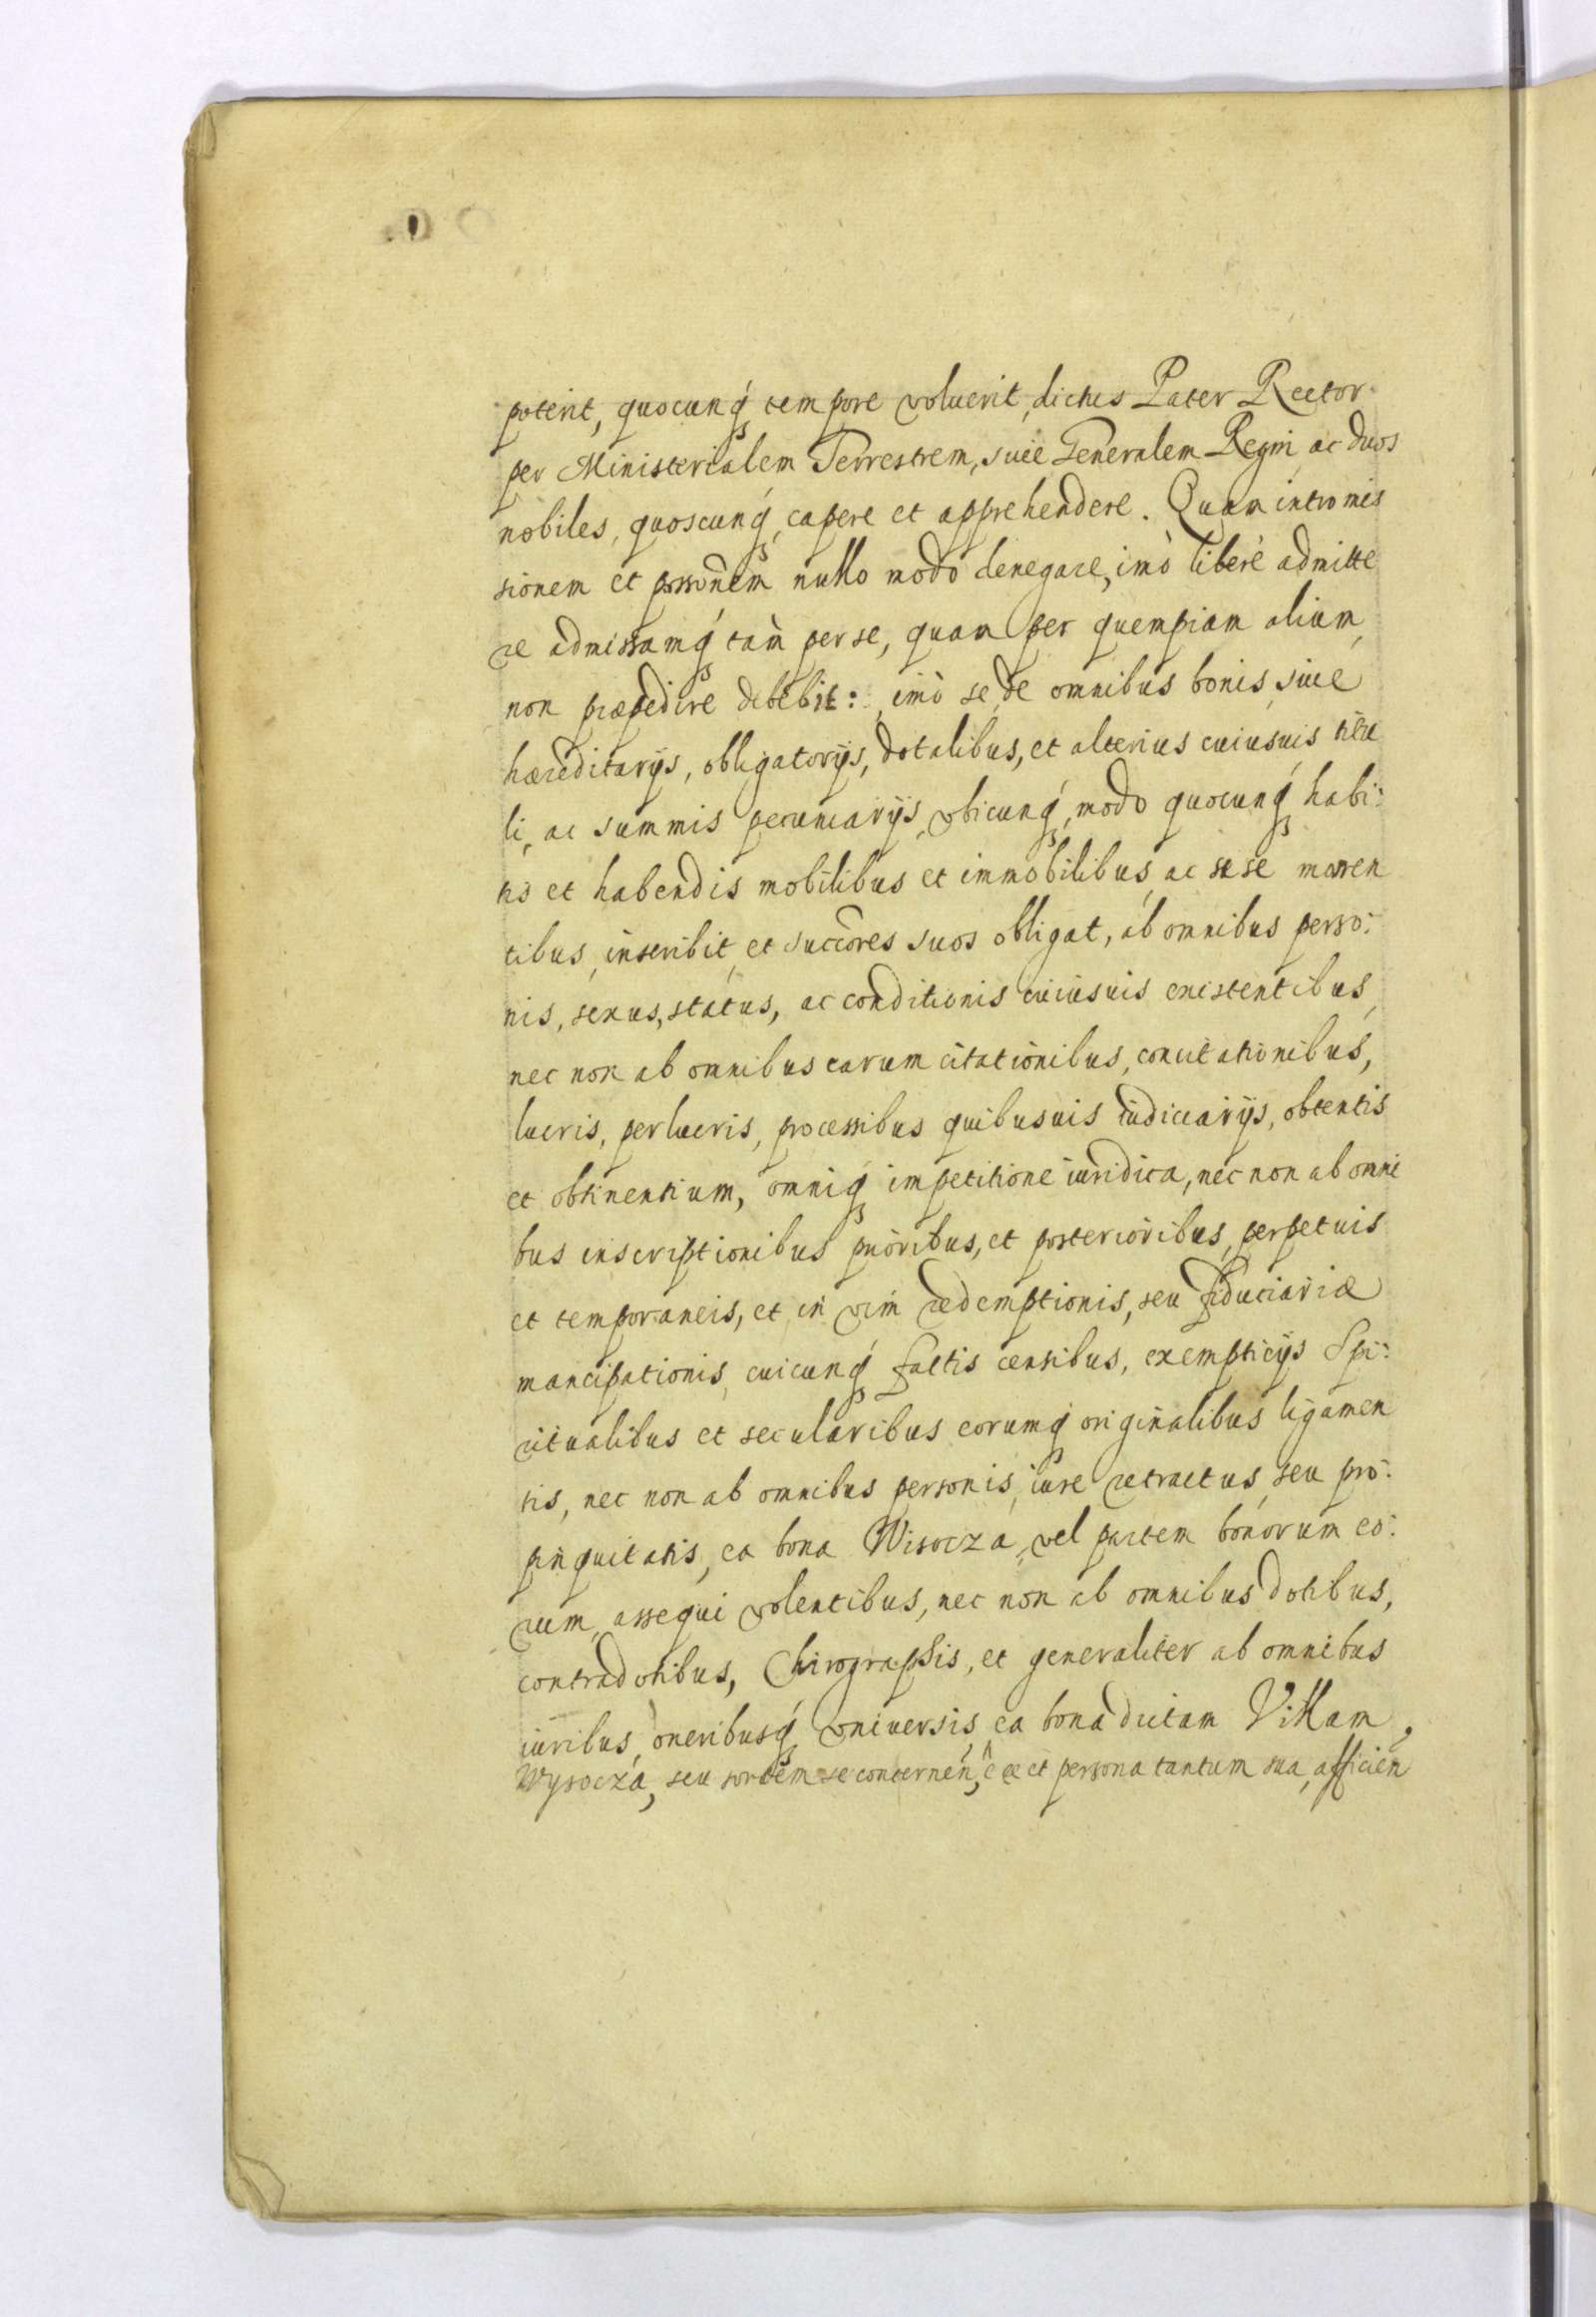 poterit, quocunq́ꝫ tempore voluerit, dictus Pater Rector
per Ministerialem Terrestrem, siue Generalem Regni ac duos
nobiles, quoscunq́ꝫ capere et apprehendere. Quam intromis
sionem et possoñem nullo modo denegare, imò liberè admitte
re admissamq́ꝫ tàm per se, quam per quempiam alium,
non præpedire debebit: imò se, de omnibus bonis, siue
hæreditarijs, obligatorijs, dotalibus, et alterius cuiusuis titu
li, ac summis pecuniarijs, vbicunq́ꝫ, modo quocunq́ꝫ habi:
tis et habendis mobilibus et immobilibus, ac sese mouen
tibus, inscribit, et succ̃ores suos obligat, ab omnibus perso:
nis, sexus, status, ac conditionis cuiusuis existentibus,
nec non ab omnibus earum citationibus, concitationibus,
lucris, perlucris, processibus quibusuis iudiciarijs, obtentis
et obtinentium, omniq́ꝫ impetitione iuridica, nec non ab omni
bus inscriptionibus prioribus, et posterioribus, perpetuis
et temporaneis, et in vim redemptionis, seu fiduciariæ
mancipationis, cuicunq́ꝫ factis censibus, exempticijs Spi:
ritualibus et secularibus eorumq́ꝫ originalibus ligamen
tis, nec non ab omnibus personis, iure retractus, seu pro:
pinquitatis, ea bona Wisocza, vel partem bonorum eo:
rum, assequi volentibus, nec non ab omnibus dotibus,
contradotibus, Chirographis, et generaliter ab omnibus
iuribus, oneribusq́ꝫ vniuersis, ea bona dictam Villam,
Wysocza, seu sortem se concerneñ, ex et persona tantum sua, afficien